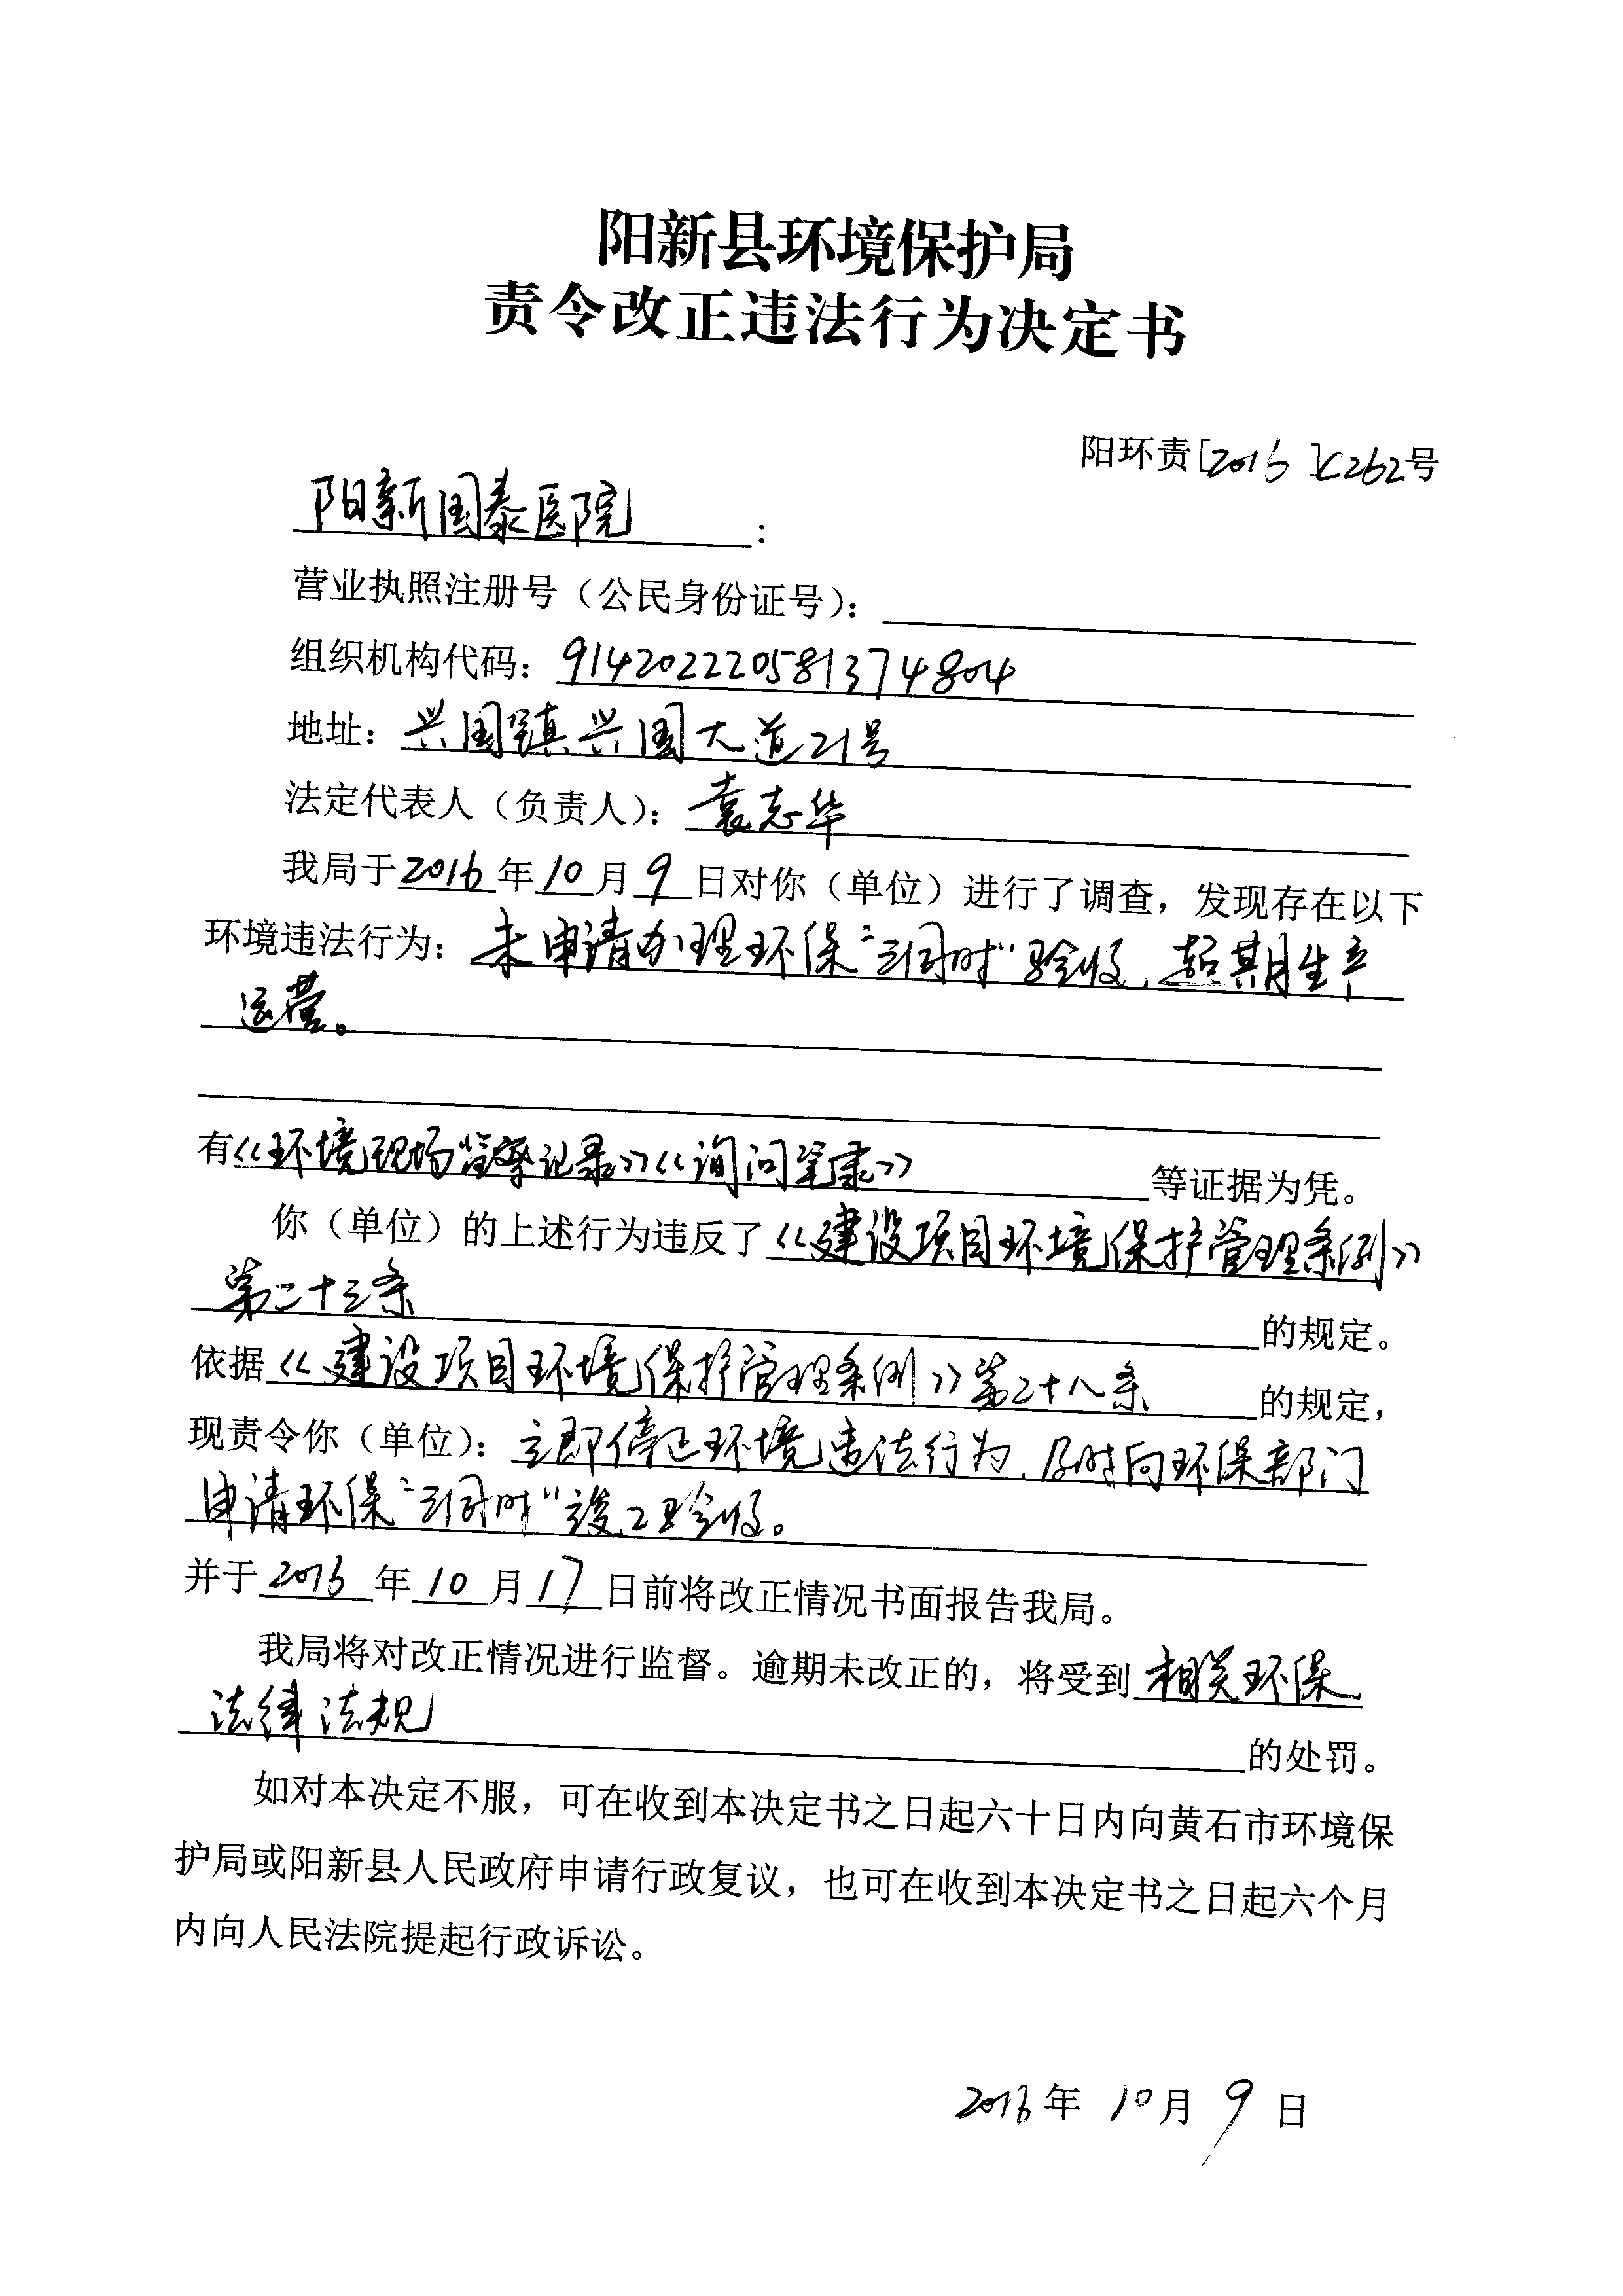 阳新县环境保护局
责令改正违法行为决定书
阳环责[2016]C262号
阳新国泰医院:
营业执照注册号（公民身份证号）:
组织机构代码: 914202220581374804
地址: 兴国镇兴国大道21号
法定代表人（负责人）: 袁志华
我局于2016年10月9日对你（单位）进行了调查，发现存在以下
环境违法行为: 未申请办理环保“三同时”验收，超期生产
运营。
有《环境现场监察记录》《询问笔录》等证据为凭。
你（单位）的上述行为违反了《建设项目环境保护管理条例》
第二十三条的规定。
依据《建设项目环境保护管理条例》第二十八条的规定，
现责令你（单位）: 立即停止环境违法行为，及时向环保部门
申请环保“三同时”竣工验收。
并于2016年10月17日前将改正情况书面报告我局。
我局将对改正情况进行监督。逾期未改正的，将受到相关环保
法律法规的处罚。
如对本决定不服，可在收到本决定书之日起六十日内向黄石市环境保
护局或阳新县人民政府申请行政复议，也可在收到本决定书之日起六个月
内向人民法院提起行政诉讼。
2016年10月9日